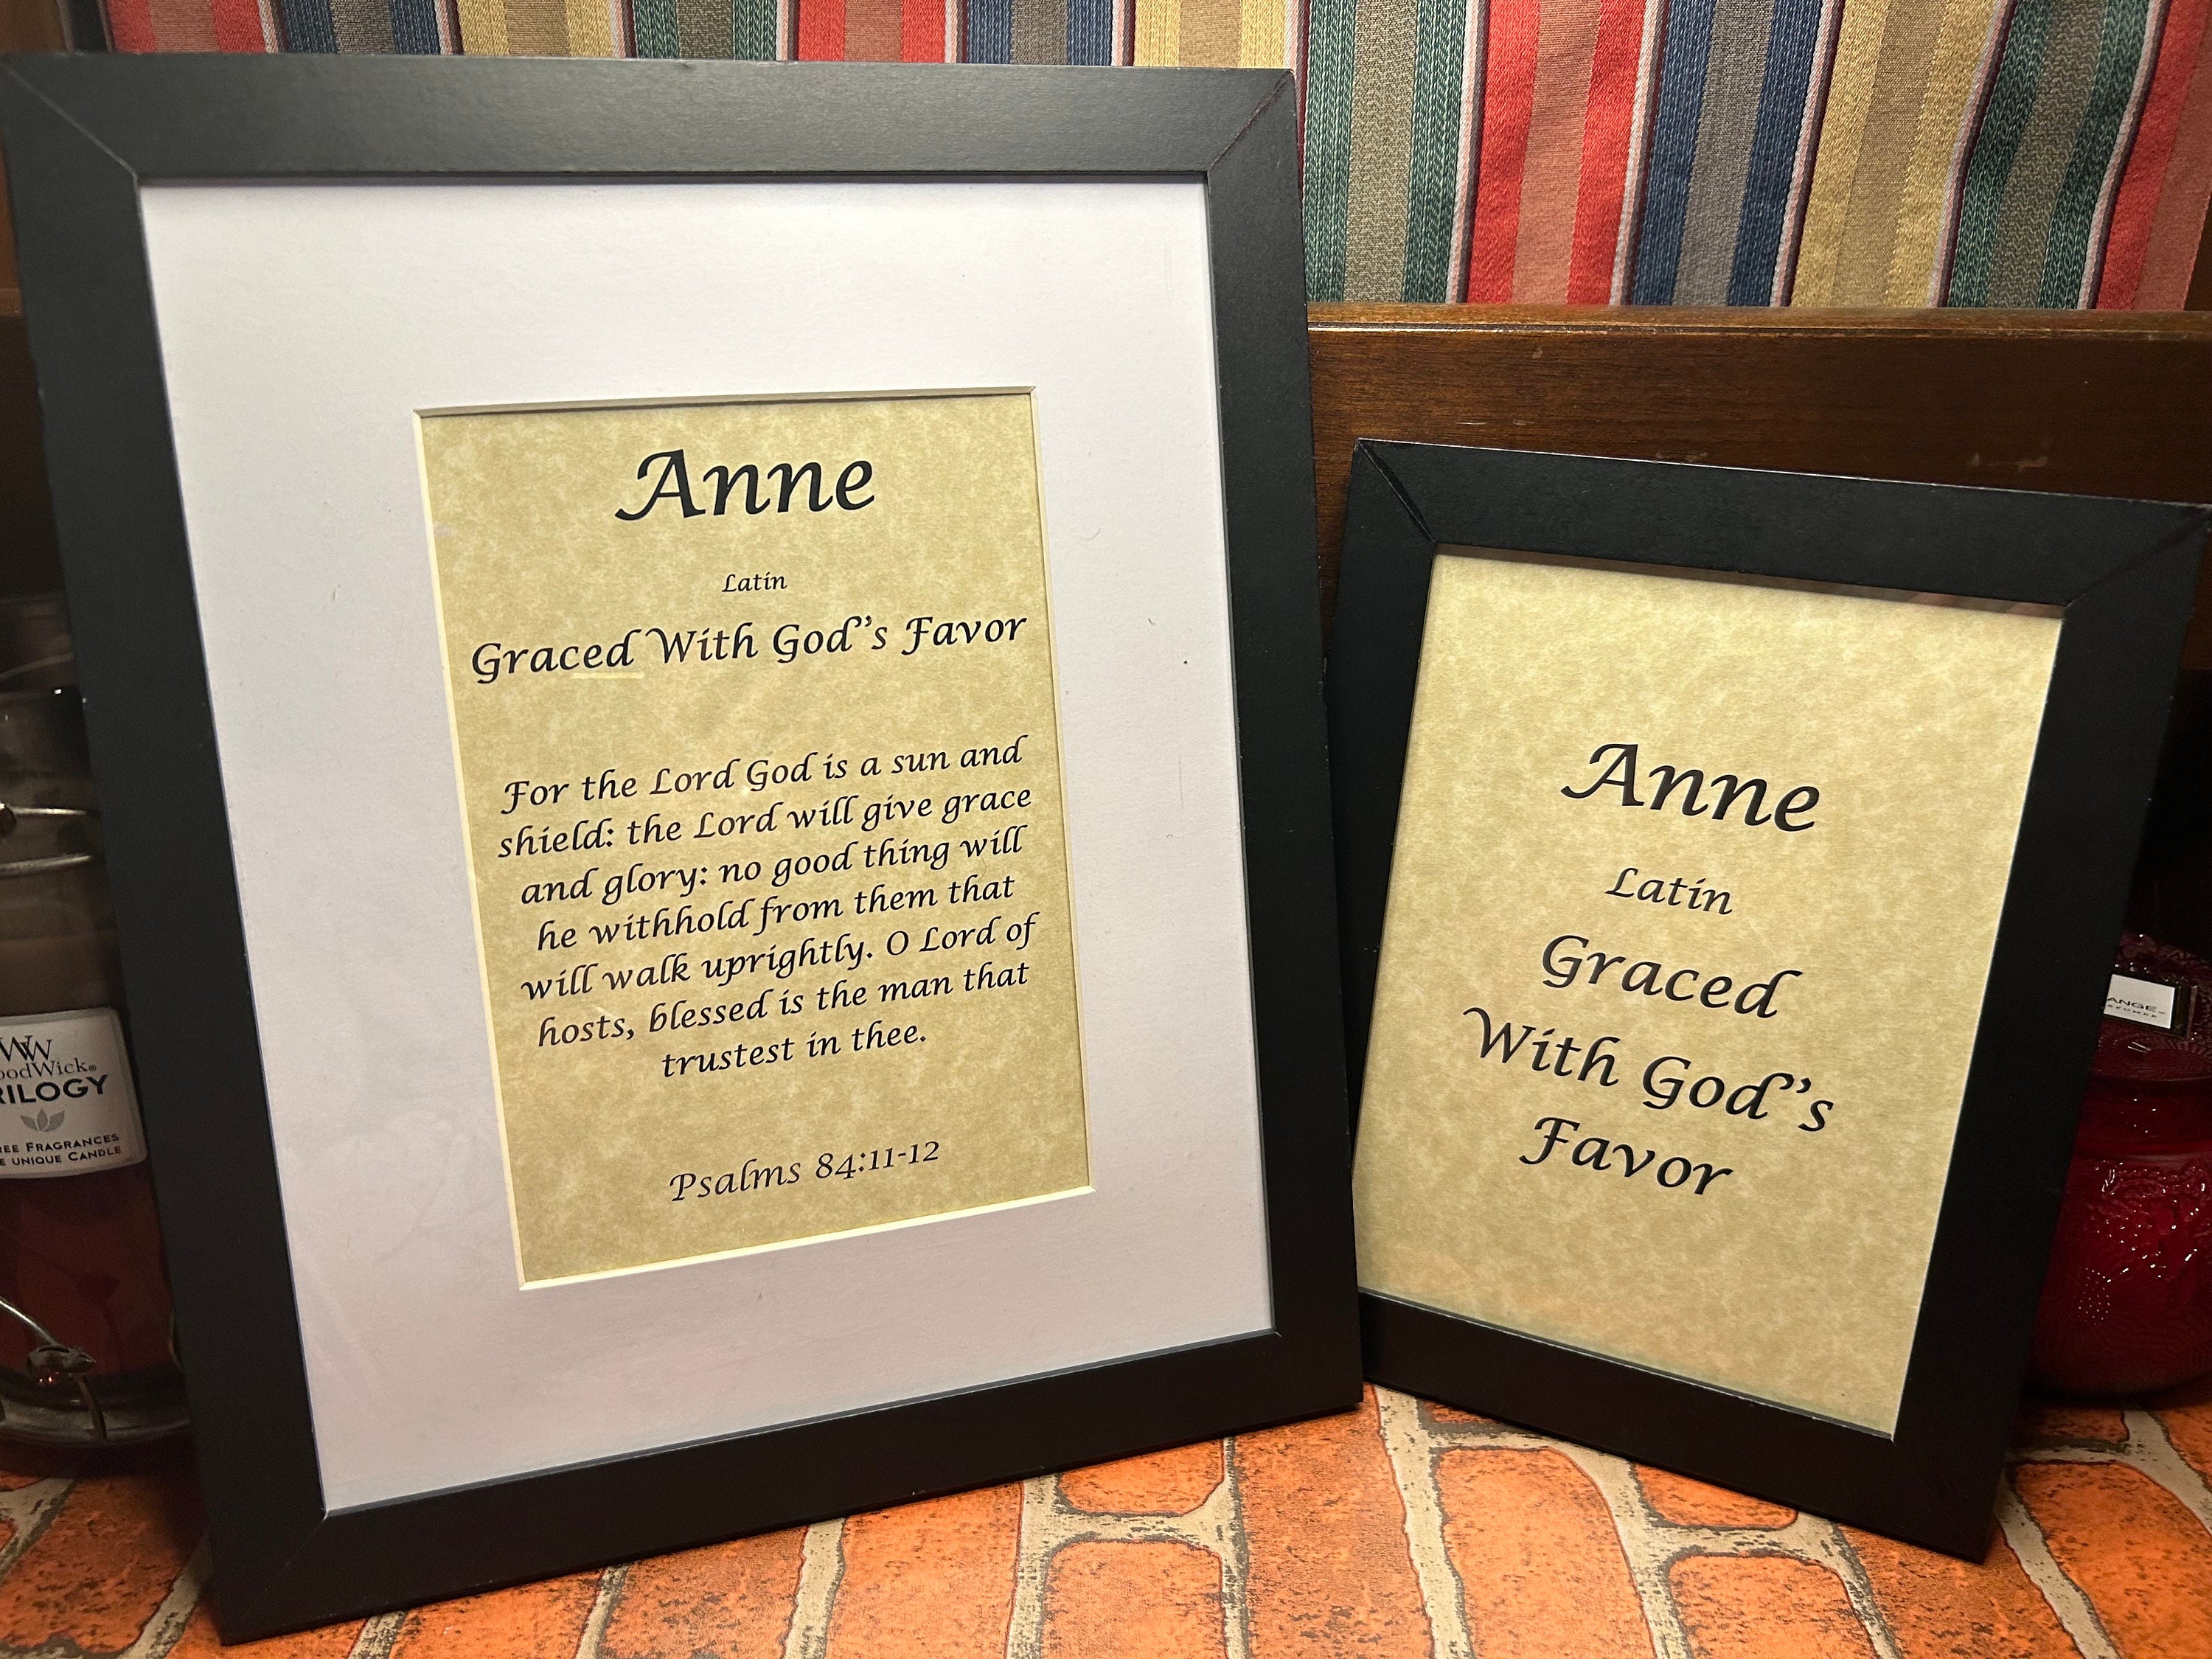 Anne
Latin
Graced With God's Favor
For the Lord God is a sun and
shield: the Lord will give grace
and glory: no good thing will
he withhold from them that
will walk uprightly. O Lord of
hosts, blessed is the man that
trustest in thee.
Psalms 84:11-12
Anne
Latin
Graced
With God's
Favor
WW
oodWick®
RILOGY
REE FRAGRANCES
E UNIQUE CANDLE
ANGE